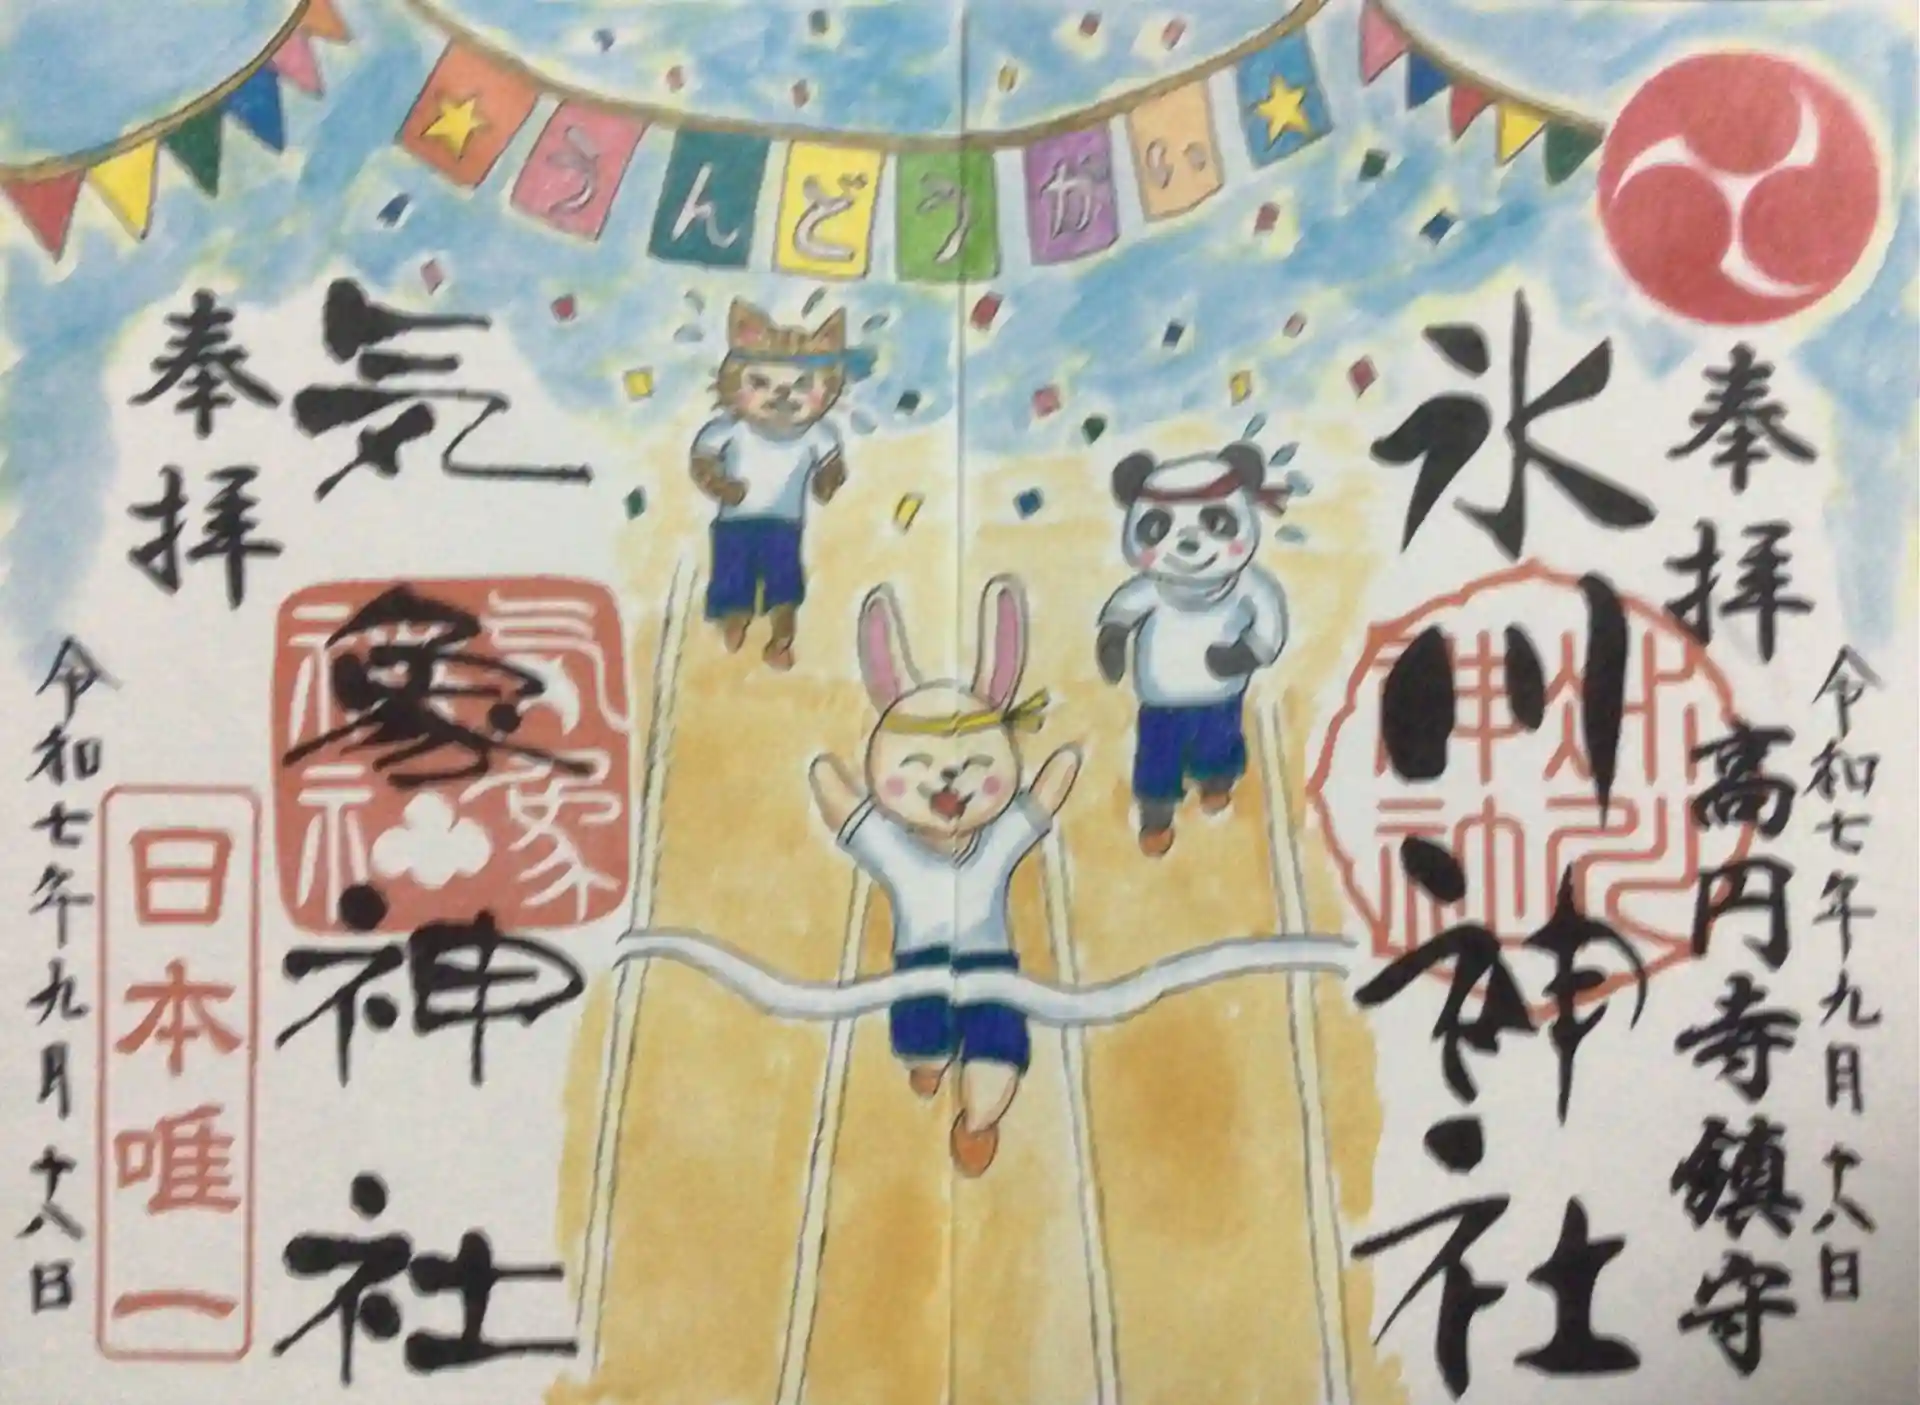 うんどうかい
奉拝
令和七年九月十八日
高円寺鎮守
氷川神社
氷川神社
気象神社
気象神社
奉拝
日本唯一
令和七年九月十八日